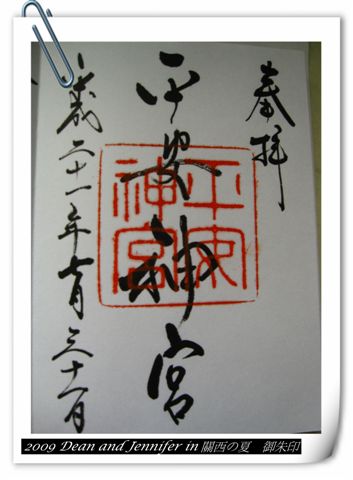 奉拝
平安神宮
平安
神宮
歳二十一年七月三十一日
2009 Dean and Jennifer in 關西の夏 御朱印